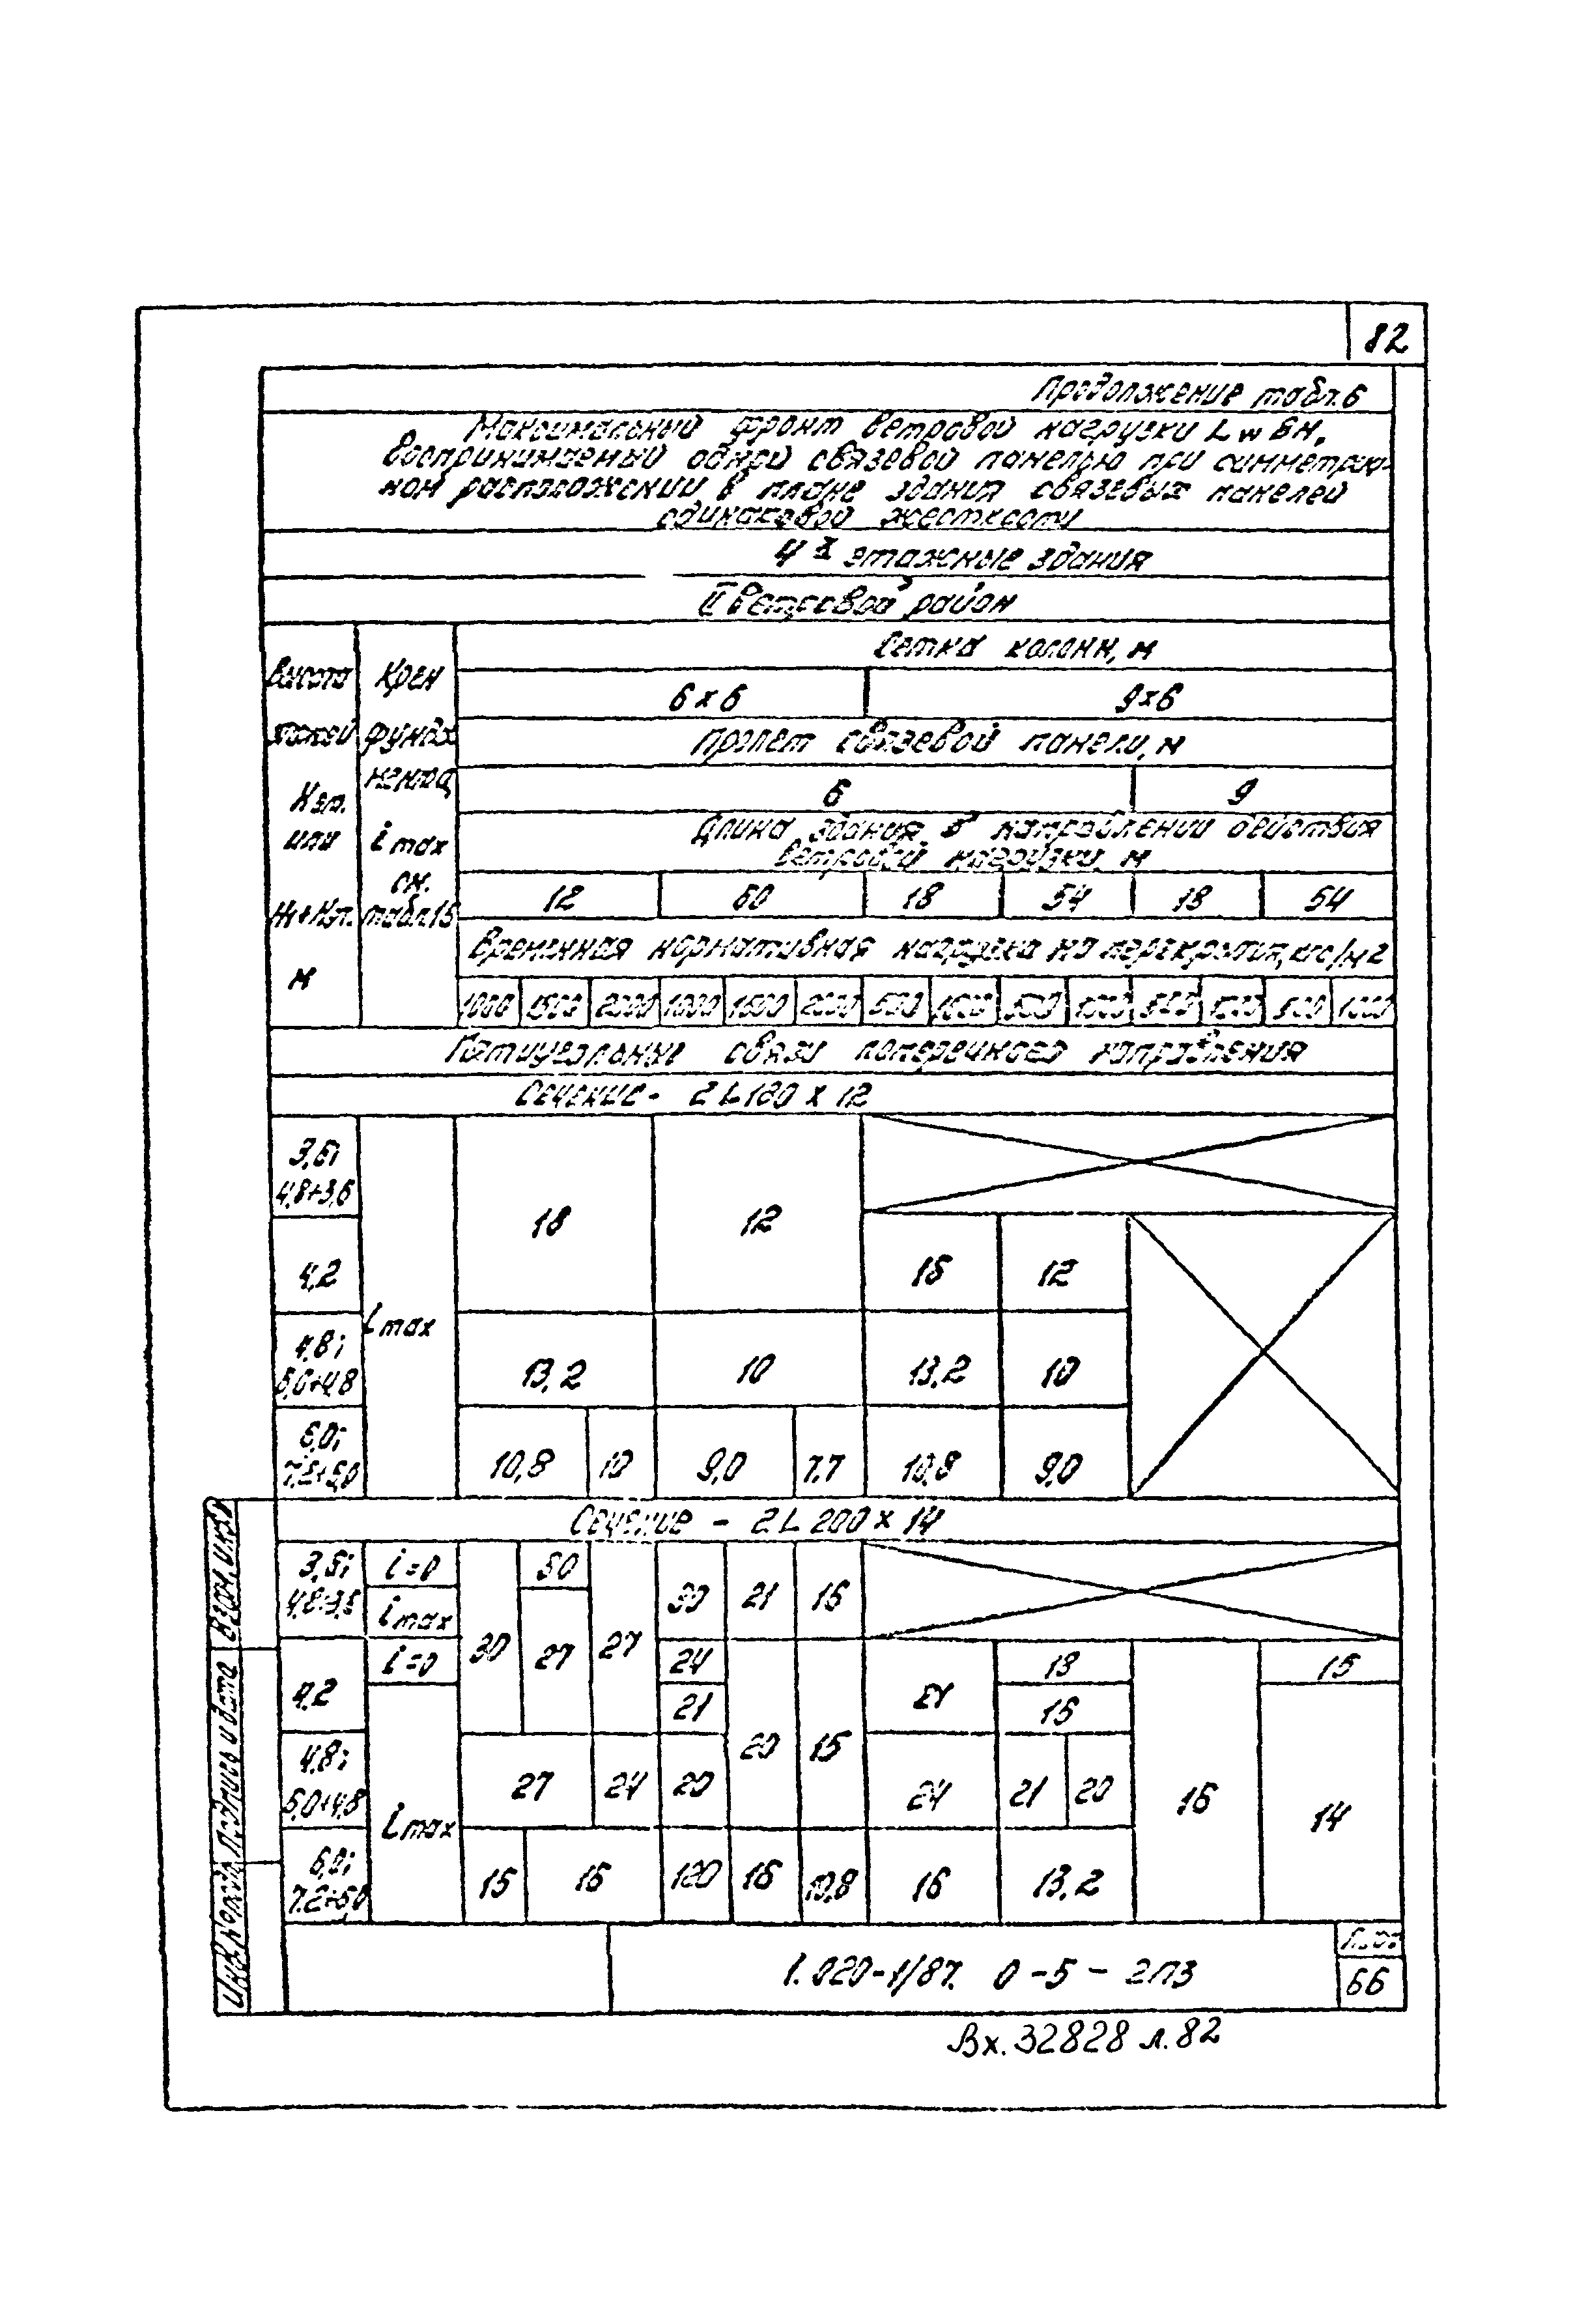 82
Продолжение табл. 6
Максимальный фронт ветровой нагрузки Lw в м,
воспринимаемый одной связевой панелью при симметрич-
ном расположении в плане здания связевых панелей
одинаковой жесткости
4х этажные здания
II Ветровой район
Высота этажей Нэт. или Н1+Нэт. м
Крен фунда мента, imax см. табл. 15
Сетка колонн, м
6х6 9х6
Пролет связевой панели, м
6 9
Длина здания в направлении действия
ветровой нагрузки, м
12 60 18 54 18 54
Временная нормативная нагрузка на перекрытия, кгс/м2
1000 1500 2000 1000 1500 2000 500 1000 500 1000 500 1000 500 1000
Пятиугольные связи поперечного направления
Сечение - 2L180 х 12
3,6; 4,8+3,6 imax 18 12
4,2 15 12
4,8; 6,0+4,8 13,2 10 13,2 10
6,0; 7,2+6,0 10,8 10 9,0 7.7 10,8 9,0
Сечение - 2L 200 х 14
3,6; 4,8+3,6 i=0 30 30 27 30 21 15
imax 27
4,2 i=0 24 20 15 21 18 16 15
imax 21 15 14
4,8; 6,0+4,8 27 24 20 24 21 20
6,0; 7.2+6,0 15 16 120 16 10,8 16 13,2
1.020-1/87. 0-5-2ПЗ
Лист
66
Инв. № подл. Подпись и дата Взам. инв. №
Вх. 32828 л. 82